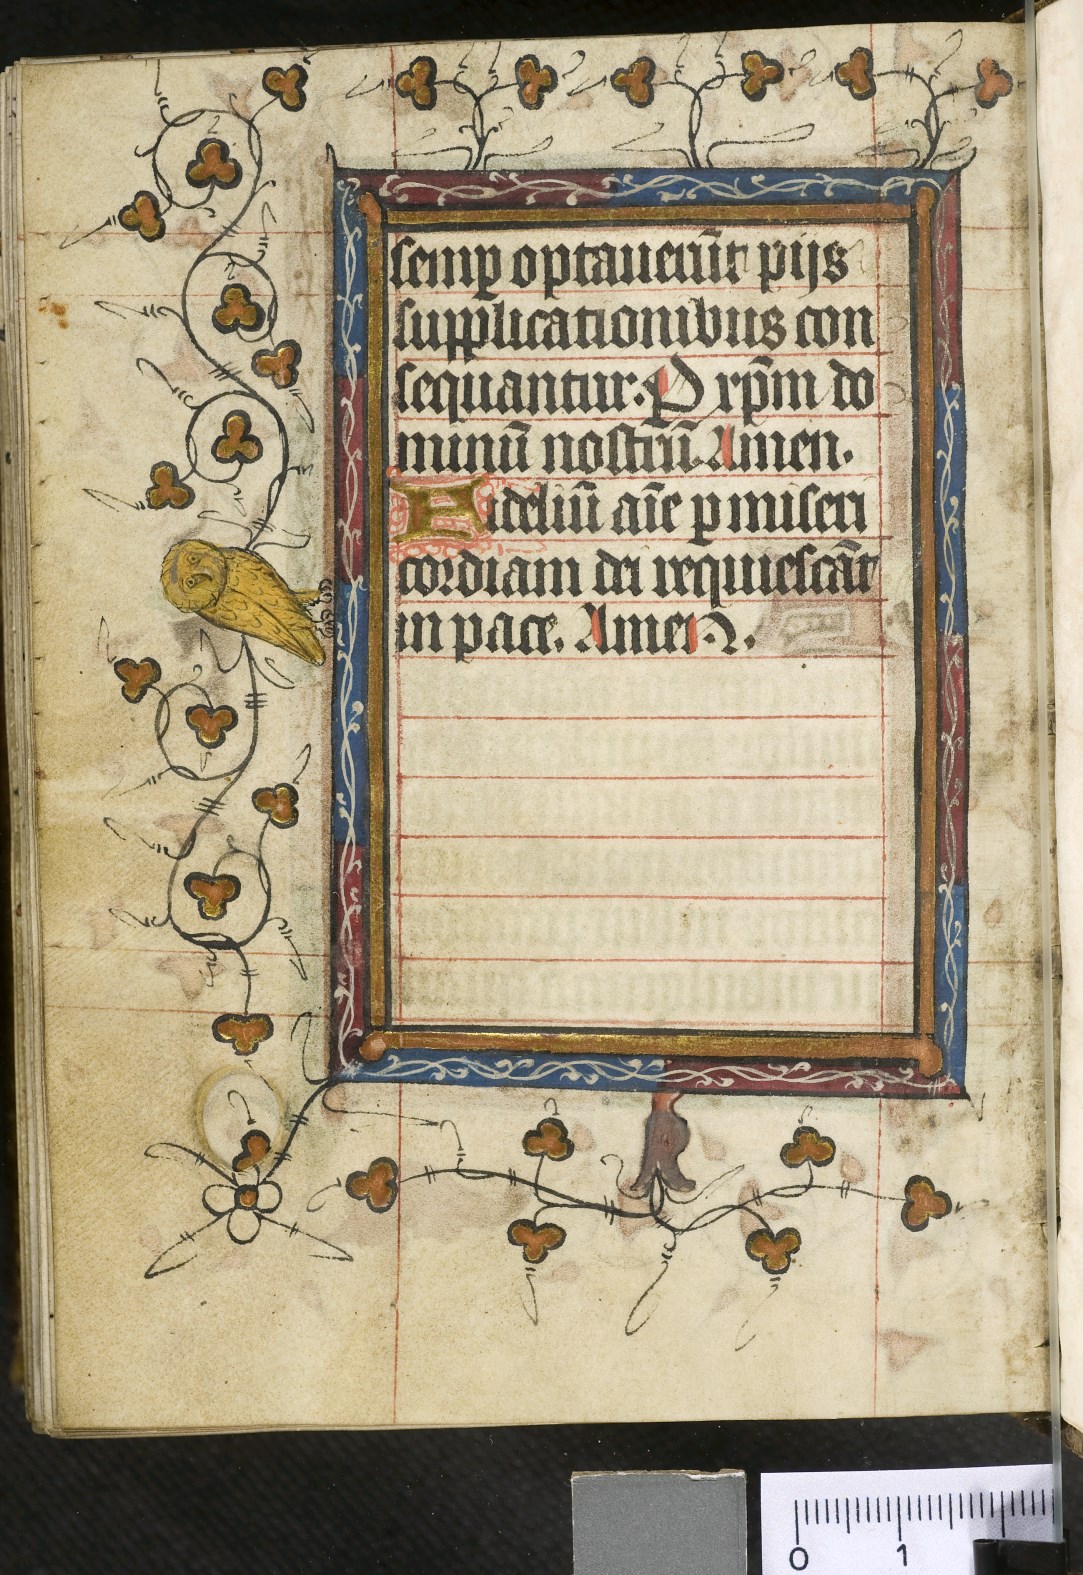 semꝑ optauerūt pijs
supplicationibus con
sequantur. P xp̄m do
minū nostrū. Amen.
Fideliū aīe ꝑ miseri
cordiam dei requiescāt
in pace. Amen.
0 1